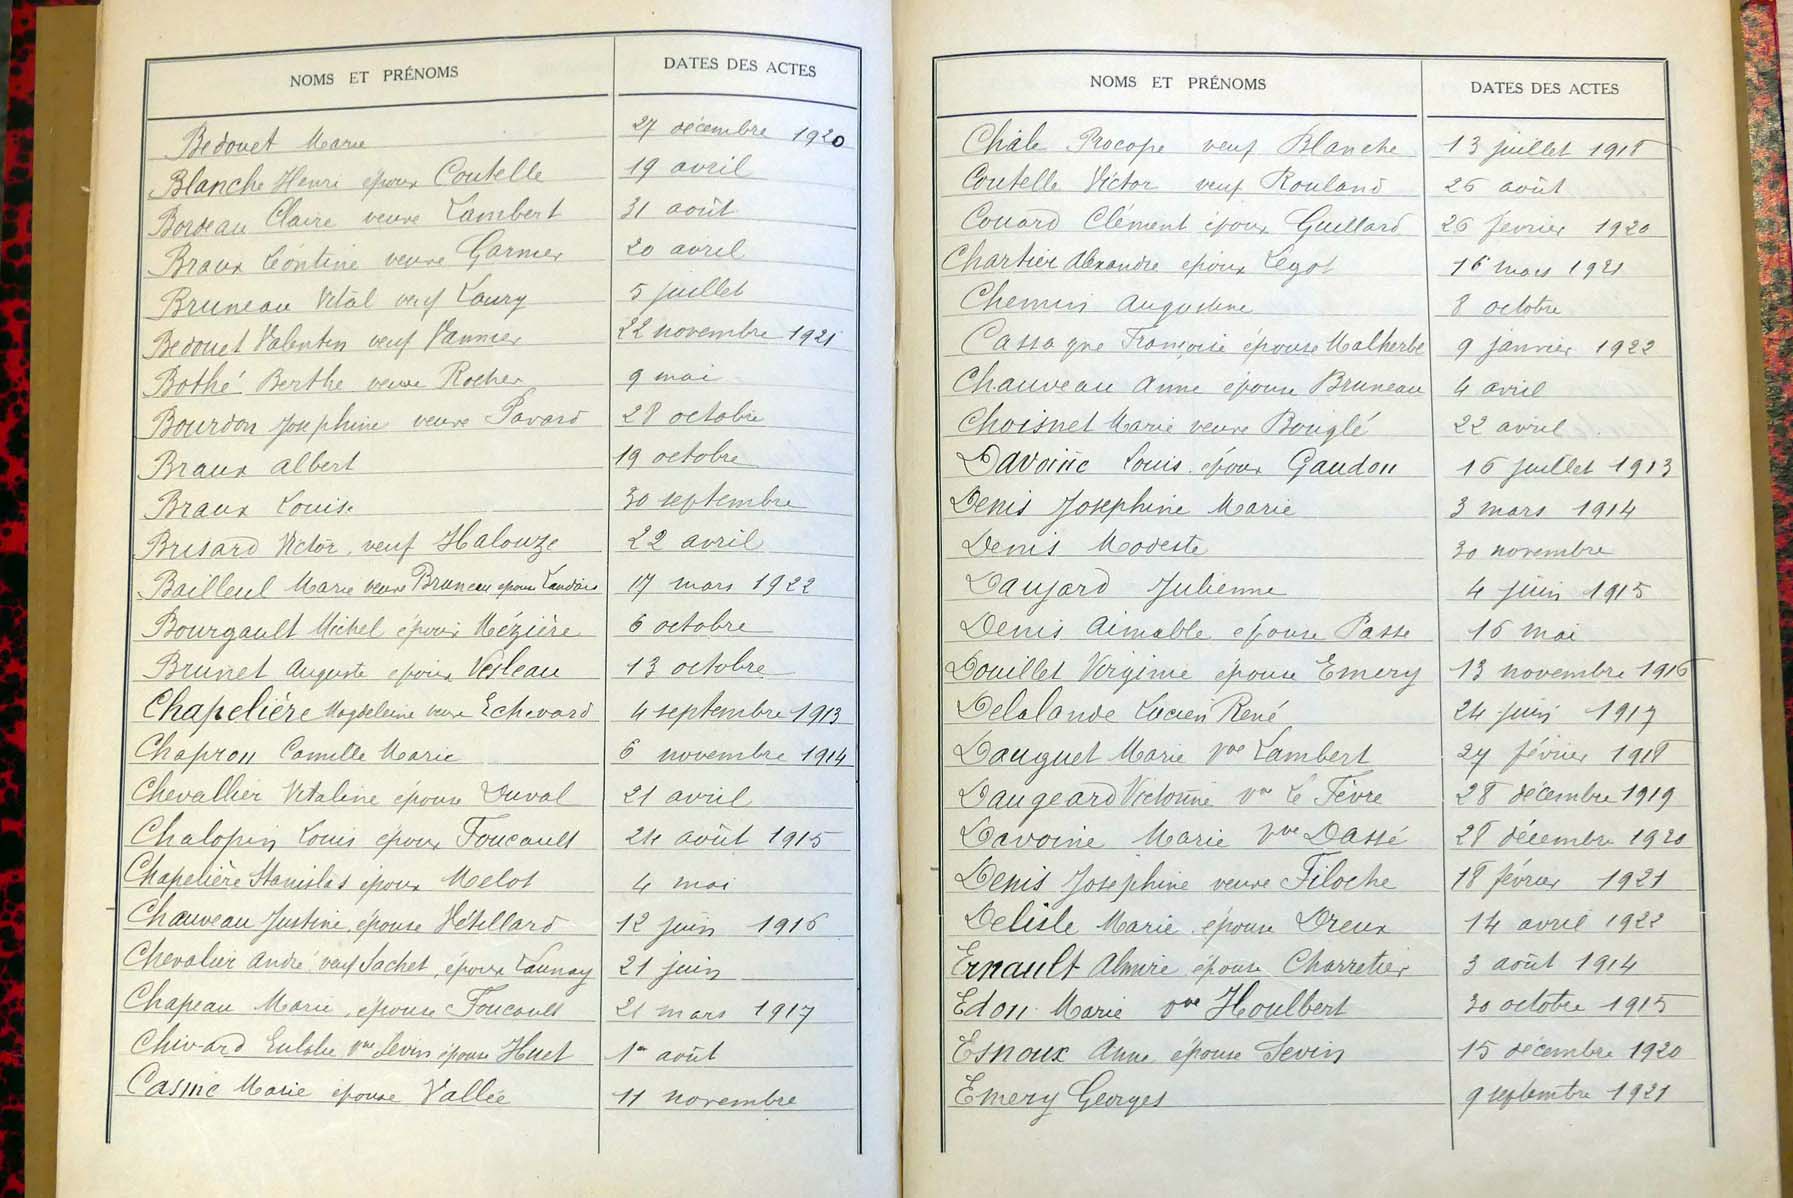 NOMS ET PRÉNOMS DATES DES ACTES
Bedouet Marie 27 décembre 1920
Blanche Henri époux Coutelle 19 avril
Bordeau Claire veuve Lambert 31 août
Braux Léontine veuve Garnier 20 avril
Bruneau Vital veuf Loury 5 juillet
Bedouet Valentin veuf Vannier 22 novembre 1921
Bothé Berthe veuve Rocher 9 mai
Bourdon Joséphine veuve Pavard 28 octobre
Braux Albert 19 octobre
Braux Louise 30 septembre
Brisard Victor, veuf Halouze 22 avril
Bailleul Marie veuve Bruneau épouse Landais 17 mars 1922
Bourgault Michel époux Mézière 6 octobre
Brunet Auguste époux 13 octobre
Chapelière Magdeleine veuve Echivard 4 septembre 1913
Chapron Camille Marie 6 novembre 1914
Chevallier Vitaline épouse Duval 21 avril
Chalopin Louis époux Foucault 24 août 1915
Chapelière Stanislas époux Melot 4 mai
Chauveau Justine, épouse Hétillard 12 juin 1916
Chevalier André veuf Sachet, époux Launay 21 juin
Chapeau Marie, épouse Foucault 21 mars 1917
Chivard Eulalie Vve Sevin épouse Huet 1er août
Casme Marie épouse Vallée 11 novembre
NOMS ET PRÉNOMS DATES DES ACTES
Châle Procope veuf Blanche 13 juillet 1918
Coutelle Victor veuf Rouland 26 août
Couard Clément époux Guillard 26 février 1920
Chartier Alexandre époux Legot 16 mars 1921
Chemin Augustine 8 octobre
Cassagne Françoise épouse Malherbe 9 janvier 1922
Chauveau Anne épouse Bruneau 4 avril
Choisnet Marie veuve Bouglé 22 avril
Davoine Louis époux Gaudou 16 juillet 1913
Denis Josephine Marie 3 mars 1914
Denis Modeste 30 novembre
Daujard Julienne 4 juin 1915
Denis Aimable épouse Passe 16 mai
Douillet Virginie épouse Emery 13 novembre 1916
Delalande Lucien René 24 juin 1917
Dauguet Marie Vve Lambert 27 février 1918
Daugeard Victorine Vve Le Fèvre 28 décembre 1919
Davoine Marie Vve Dassé 28 décembre 1920
Denis Joséphine veuve Filoche 18 février 1921
Delisle Marie épouse Dreux 14 avril 1922
Ernault Almire épouse Charretier 3 août 1914
Edou Marie Vve Houlbert 30 octobre 1915
Esnoux Anne épouse Sevin 15 décembre 1920
Emery Georges 9 septembre 1921